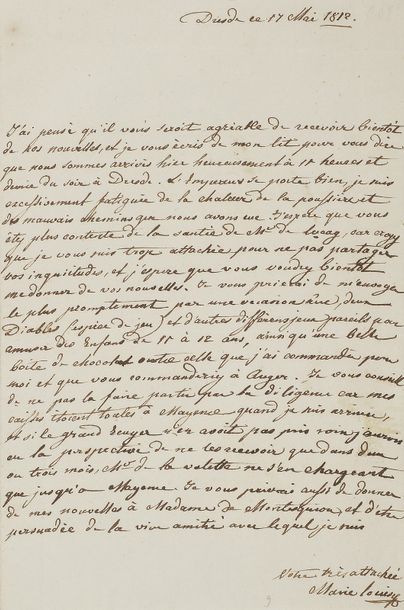 Dresde ce 17 Mai 1812.
J'ai pensé qu'il vous seroit agréable de recevoir bientôt
de nos nouvelles, et je vous écris de mon lit pour vous dire
que nous sommes arrivés hier heureusement à 11 heures et
demie du soir à Dresde. L'Empereur se porte bien, je suis
excessivement fatiguée de la chaleur de la poussière et
des mauvais chemins que nous avons eu. J'espère que vous
êtes plus contente de la santée de Mr de Luçay, car croyez
que je vous suis trop attachée pour ne pas partager
vos inquiétudes, et j'espère que vous voudrez bientôt
me donner de vos nouvelles. Je vous prierai de m'envoyer
le plus promptement par une occasion sûre, deux
Diables (espèce de jeu) et d'autres différens jeux pareils pour
amuser des Enfans de 11 à 12 ans, ainsi qu'une belle
boite de chocolat outre celle que j'ai commandée pour
moi et que vous commanderez à Auger. Je vous conseille
de ne pas la faire partir par la diligence car mes
caisses étoient toutes à Mayence quand j'y suis arrivée,
et si le grand Ecuyer n'en avoit pas pris soin j'aurois
eu la perspective de ne les recevoir que dans deux
ou trois mois, Mr de la Valette ne s'en chargeant
que jusqu'à Mayence. Je vous prierais aussi de donner
de mes nouvelles à Madame de Montesquiou et d'être
persuadée de la vive amitié avec lequel je suis
Votre très attachée
Marie Louise